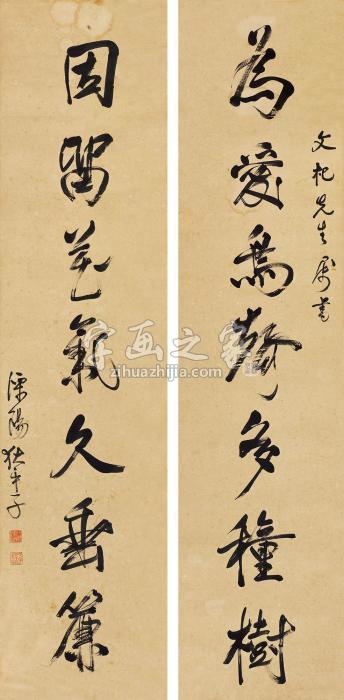 文杞先生屬書
為愛鳥聲多種樹
因留花氣久垂簾
溧陽狄平子
字画之家
zihuazhijia.com